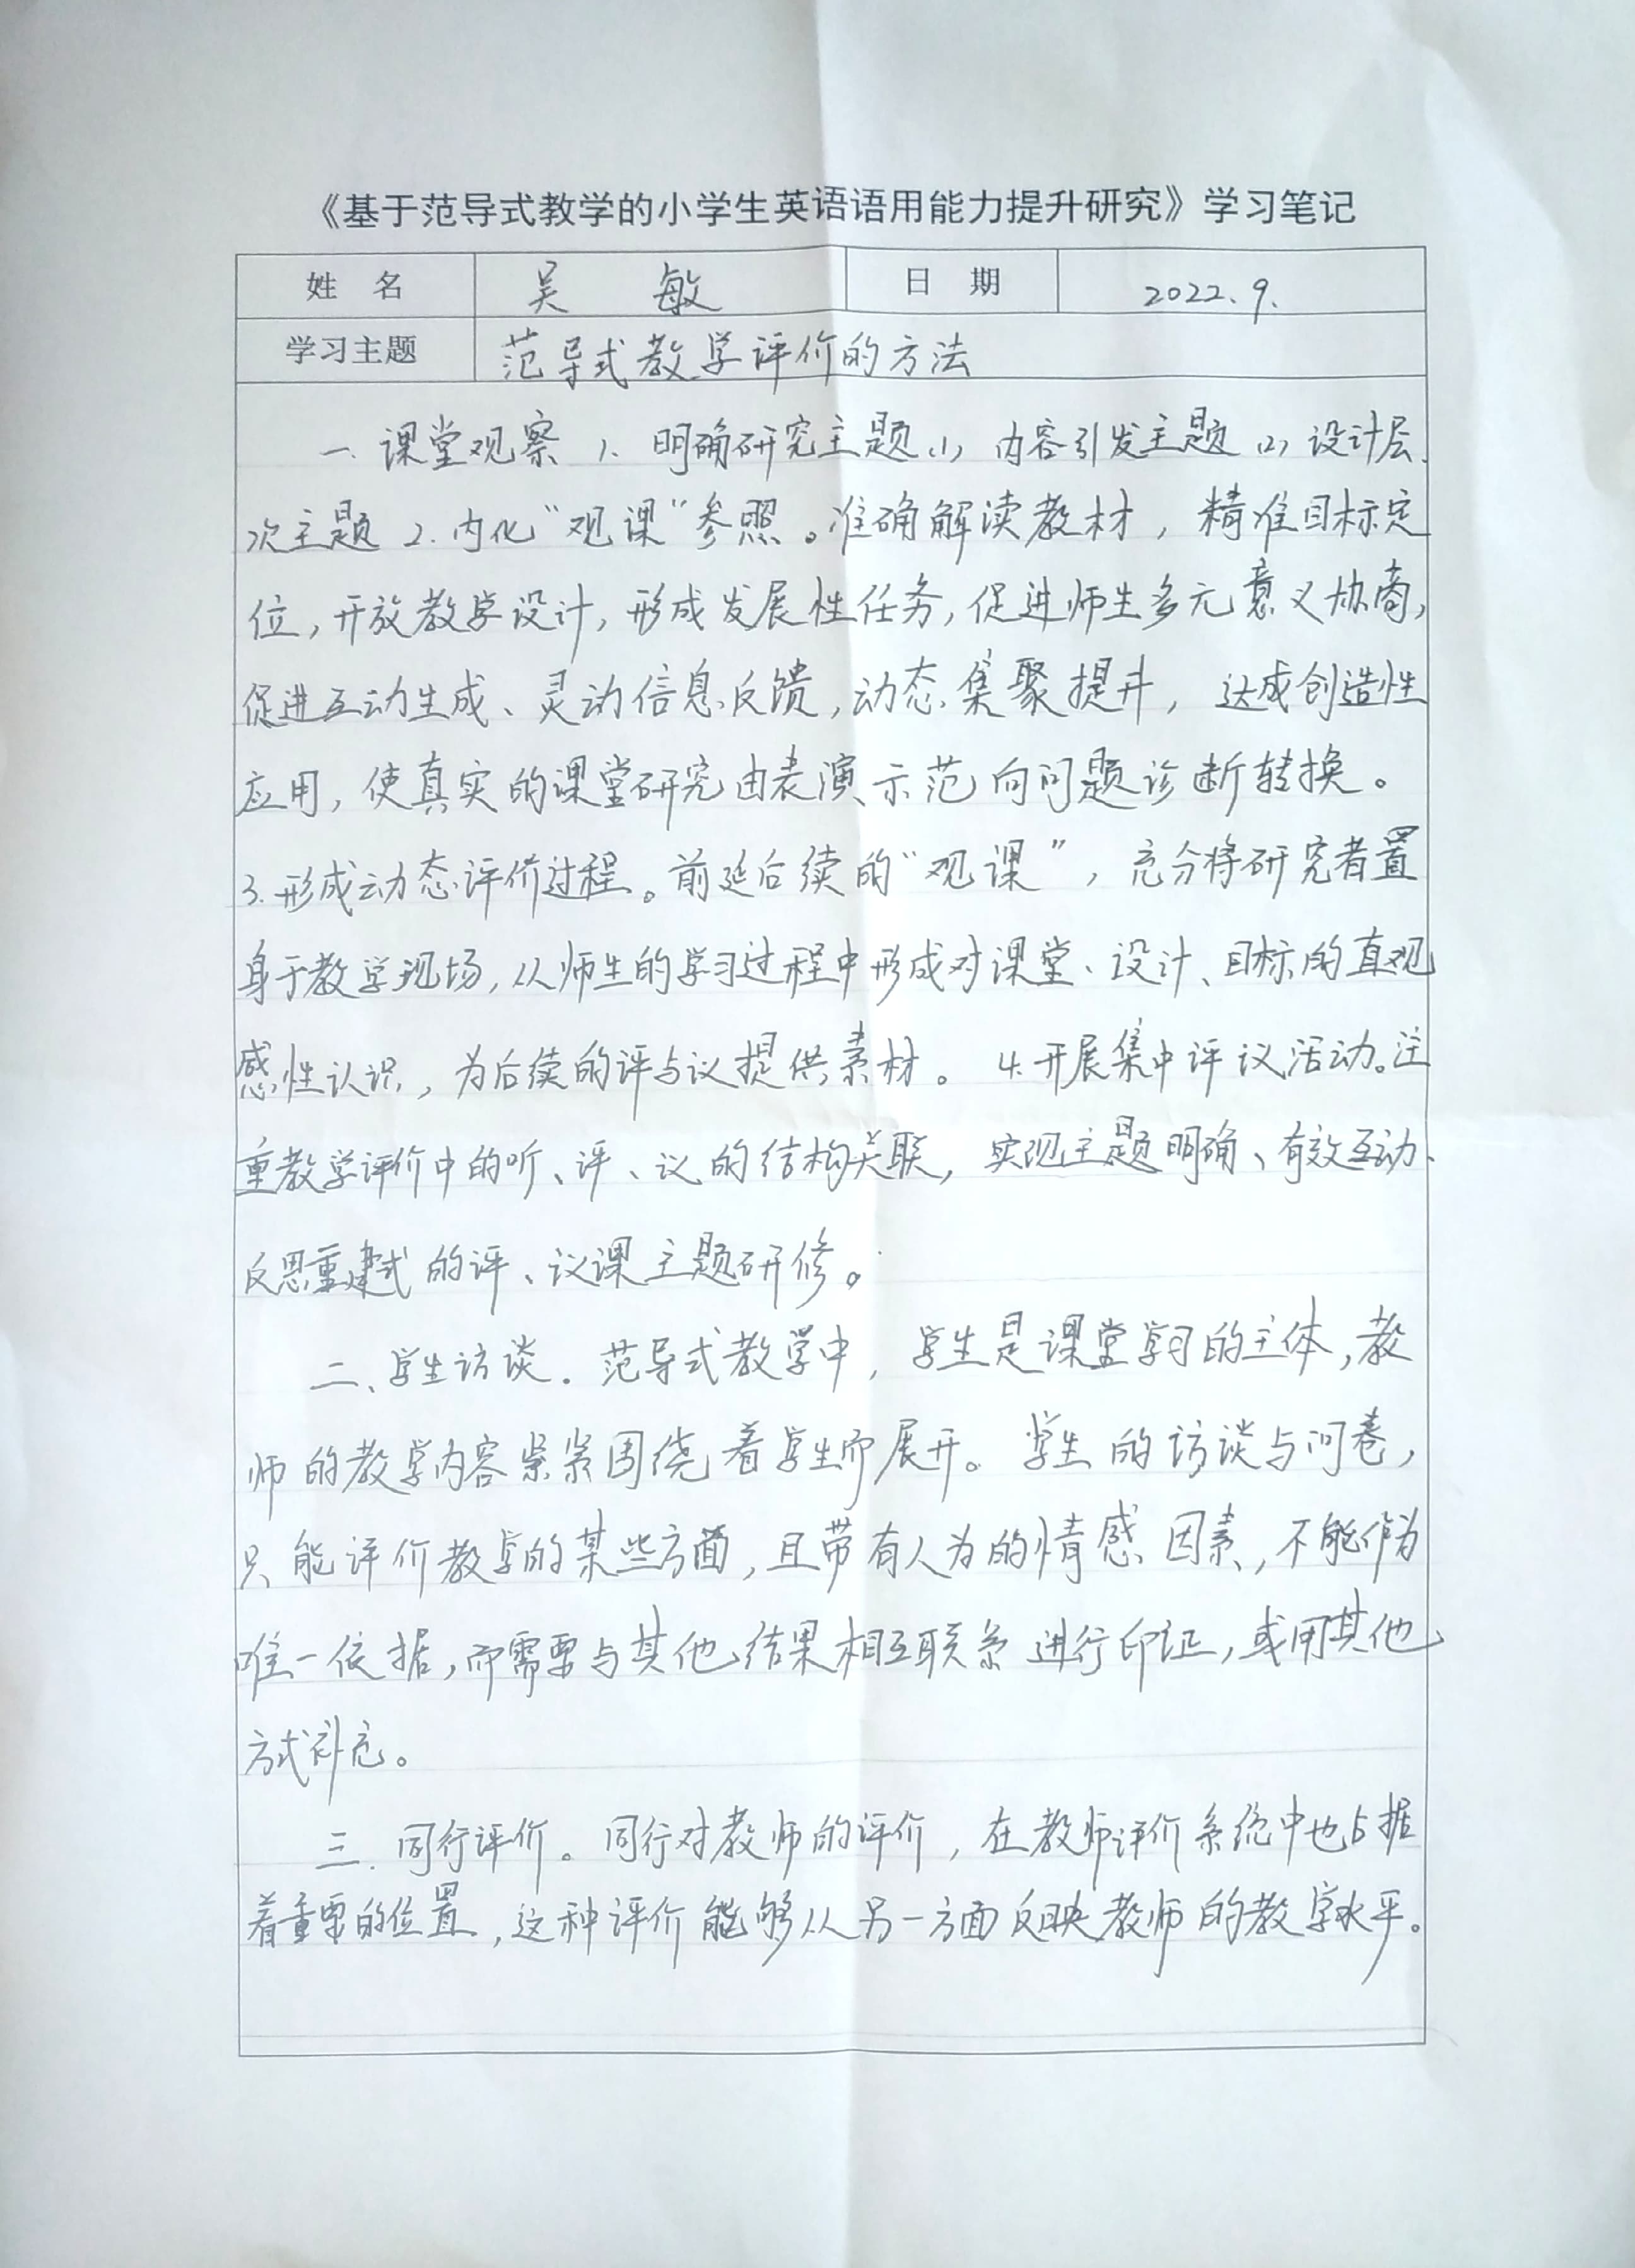 《基于范导式教学的小学生英语语用能力提升研究》学习笔记
姓 名 吴 敏 日 期 2022.9.
学习主题 范导式教学评价的方法
一、课堂观察 1、明确研究主题(1)内容引发主题(2)设计层
次主题 2.内化“观课”参照。准确解读教材，精准目标定
位，开放教学设计，形成发展性任务，促进师生多元意义协商，
促进互动生成、灵动信息反馈，动态集聚提升，达成创造性
应用，使真实的课堂研究由表演示范向问题诊断转换。
3.形成动态评价过程。前延后续的“观课”，充分将研究者置
身于教学现场，从师生的学习过程中形成对课堂、设计、目标的直观
感性认识，为后续的评与议提供素材。 4.开展集中评议活动。注
重教学评价中的听、评、议的结构关联，实现主题明确、有效互动、
反思重建式的评、议课主题研修。
二、学生访谈．范导式教学中，学生是课堂学习的主体，教
师的教学内容紧紧围绕着学生而展开。学生的访谈与问卷，
只能评价教学的某些方面，且带有人为的情感因素，不能作为
唯一依据，而需要与其他结果相互联系进行印证，或用其他
方式补充。
三．同行评价。同行对教师的评价，在教师评价系统中也占据
着重要的位置，这种评价能够从另一方面反映教师的教学水平。